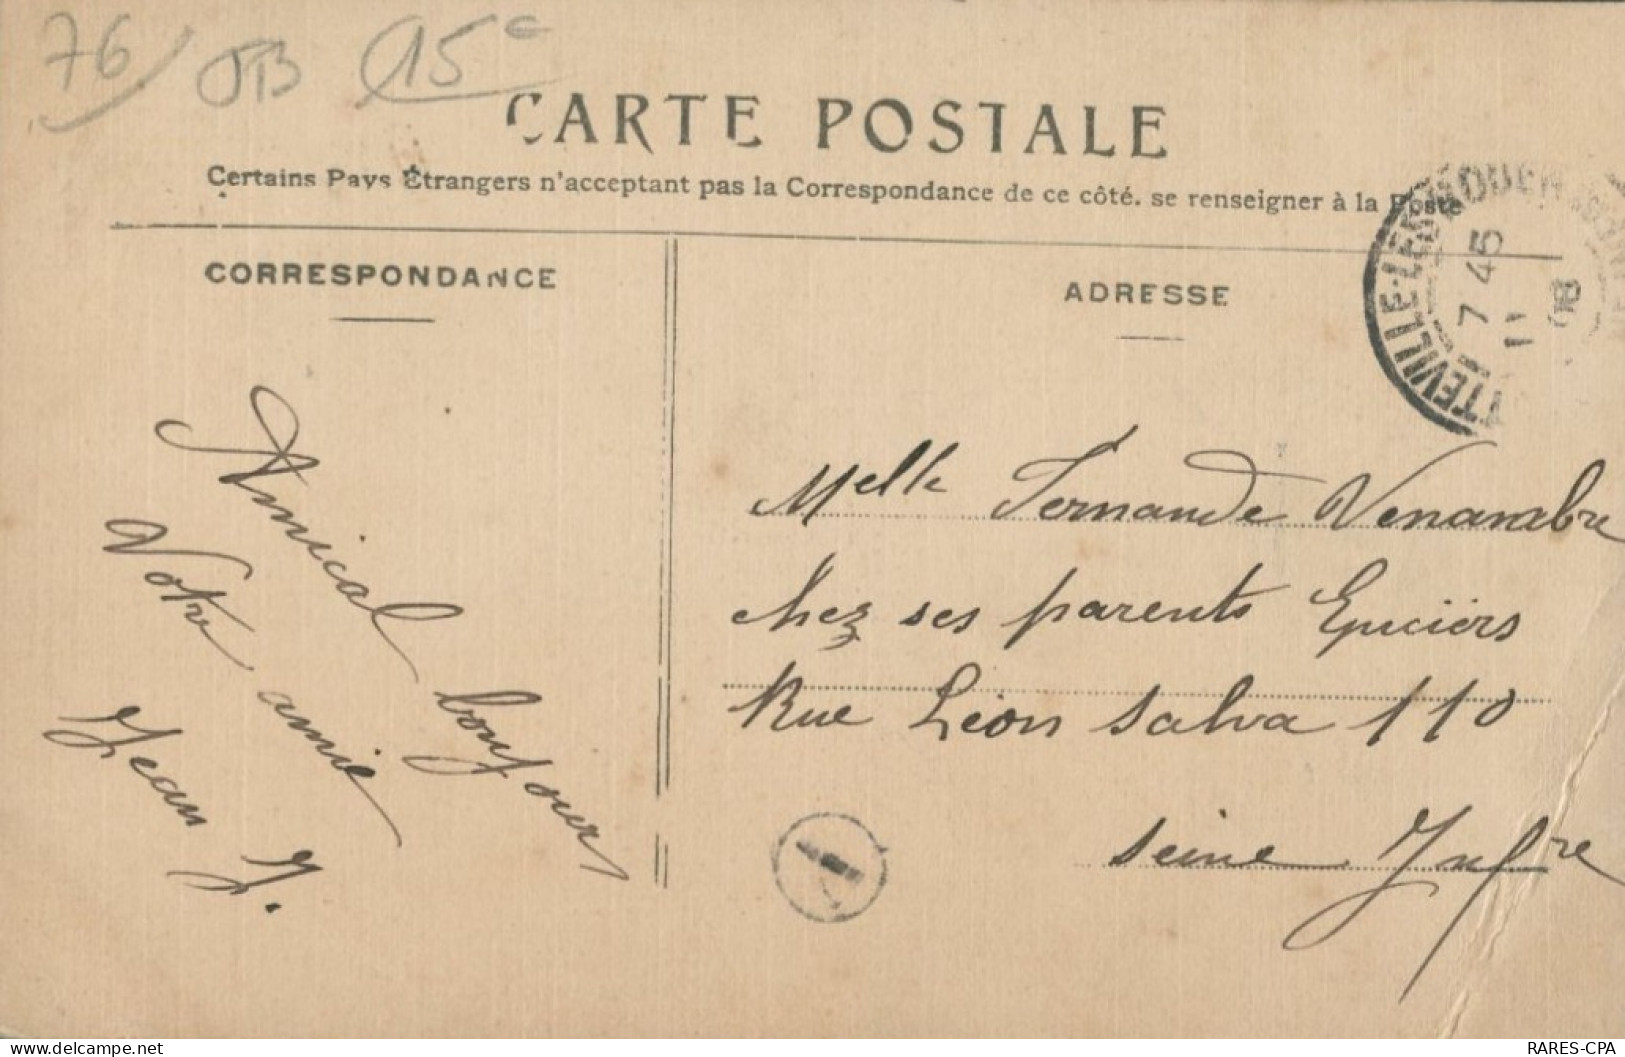 76 TB 15c
CARTE POSTALE
Certains Pays Étrangers n'acceptant pas la Correspondance de ce côté. se renseigner à la Poste
CORRESPONDANCE
ADRESSE
TTEVILLE-LES-ROUEN
7 45
11
Amical bonjour
Votre amie
Jean J.
Melle Fernande Venambre
chez ses parents Epiciers
Rue Léon Salva 110
Seine Infre
RARES-CPA